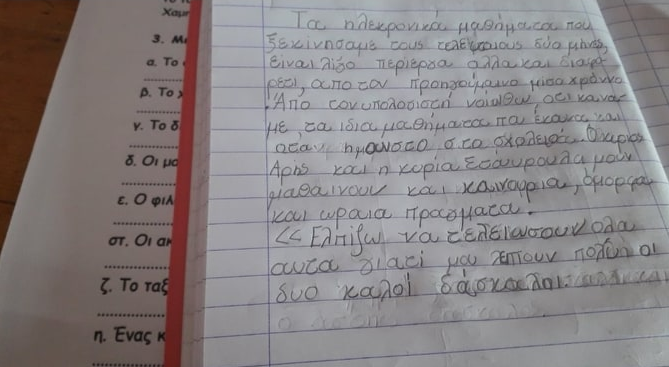 Χαμη
3. Με
α. Το
β. Το χ
γ. Το δ
δ. Οι μα
ε. Ο φιλ
στ. Οι ακ
ζ. Το ταξ
η. Ένας κ
Τα ηλεκρονικά μαθήματα που
ξεκινήσαμε τους τελευταιους δύο μήνες,
είναι λίγο περίεργα αλλα και διαφ
ρετι, απο τον προηγούμαινο μισο χρόνο.
Από τον υπολογιστή νοιώθω οτι κάνου
με, τα ιδια μαθήματα που έκανα και
οταν ημουνστο στο σχολειο. Ο κυριος
Αρης και η κυρία Σταυρουλα μου
μαθαινουν και καινουρια, όμορφα
και ωραια πραγματα.
<< Ελπίζω να τελειωσουν ολα
αυτα γιατί μου λειπουν πολύ οι
δυο καλοί δάσκαλοι